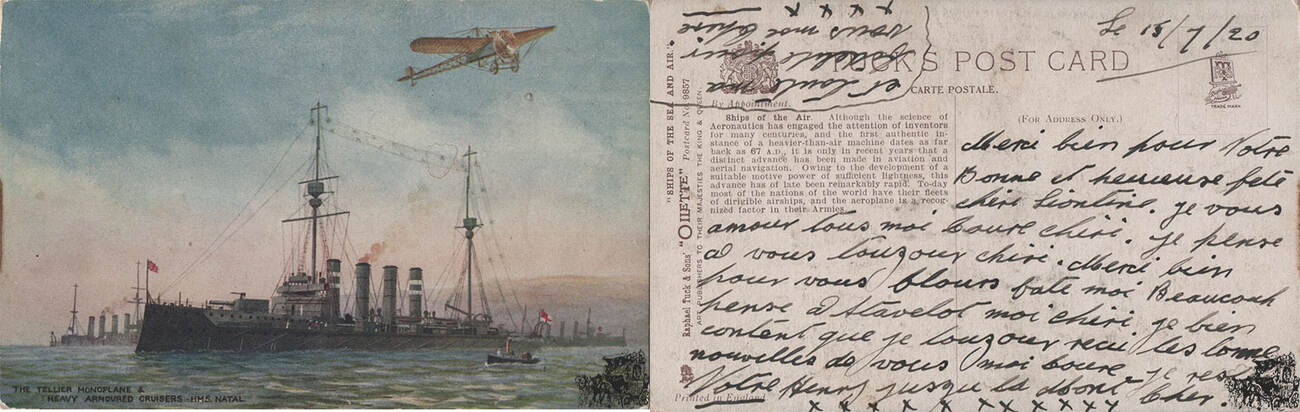 THE TELLIER MONOPLANE &
HEAVY ARMOURED CRUISERS - H.M.S. NATAL.
x x x x
et toute ma
vous mon chere
Le 15/7/20
TUCK'S POST CARD
CARTE POSTALE.
By Appointment.
(FOR ADDRESS ONLY.)
TRADE MARK
"SHIPS OF THE SEA AND AIR."
Raphael Tuck & Sons' "OILETTE" Postcard No. 9857
ART PUBLISHERS TO THEIR MAJESTIES THE KING & QUEEN.
Ships of the Air. Although the science of
Aeronautics has engaged the attention of inventors
for many centuries, and the first authentic in-
stance of a heavier-than-air machine dates as far
back as 67 A.D., it is only in recent years that a
distinct advance has been made in aviation and
aerial navigation. Owing to the development of a
suitable motive power of sufficient lightness, this
advance has of late been remarkably rapid. To-day
most of the nations of the world have their fleets
of dirigible airships, and the aeroplane is a recog-
nized factor in their Armies.
Merci bien pour Votre
Bonne et heureuse fete
cheri Liontine. je vous
amour tous moi coure cheri. je pense
a vous touzour cheri. Merci bien
pour vous flours fate moi Beaucouh
pense a Stavelot moi cheri. je bien
content que je touzour recu les bonne
nouvelles de vous moi coure je rest
Votre Henry jusque la Cher.
Printed in England
x x x x x x x x x x